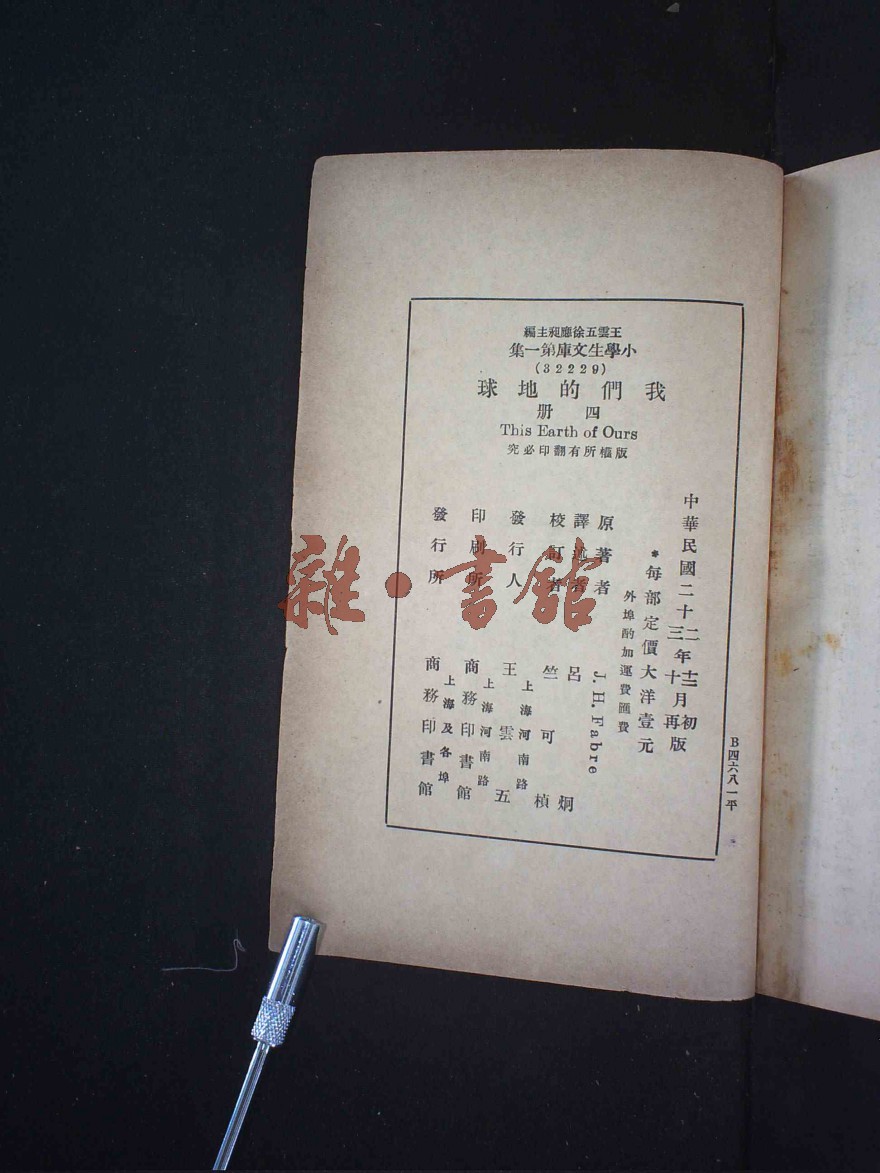 王雲五徐應昶主編
小學生文庫第一集
(32229)
我們的地球
四册
This Earth of Ours
版權所有翻印必究
中華民國二十二年十二月初版
三年十月再版
*每部定價大洋壹元
外埠酌加運費匯費
原著者 J. H. Fabre
譯述者 呂炯
校訂者 竺可楨
上海河南路
發行人 王雲五
上海河南路
印刷所 商務印書館
上海及各埠
發行所 商務印書館
B四六八一平
雜·書館